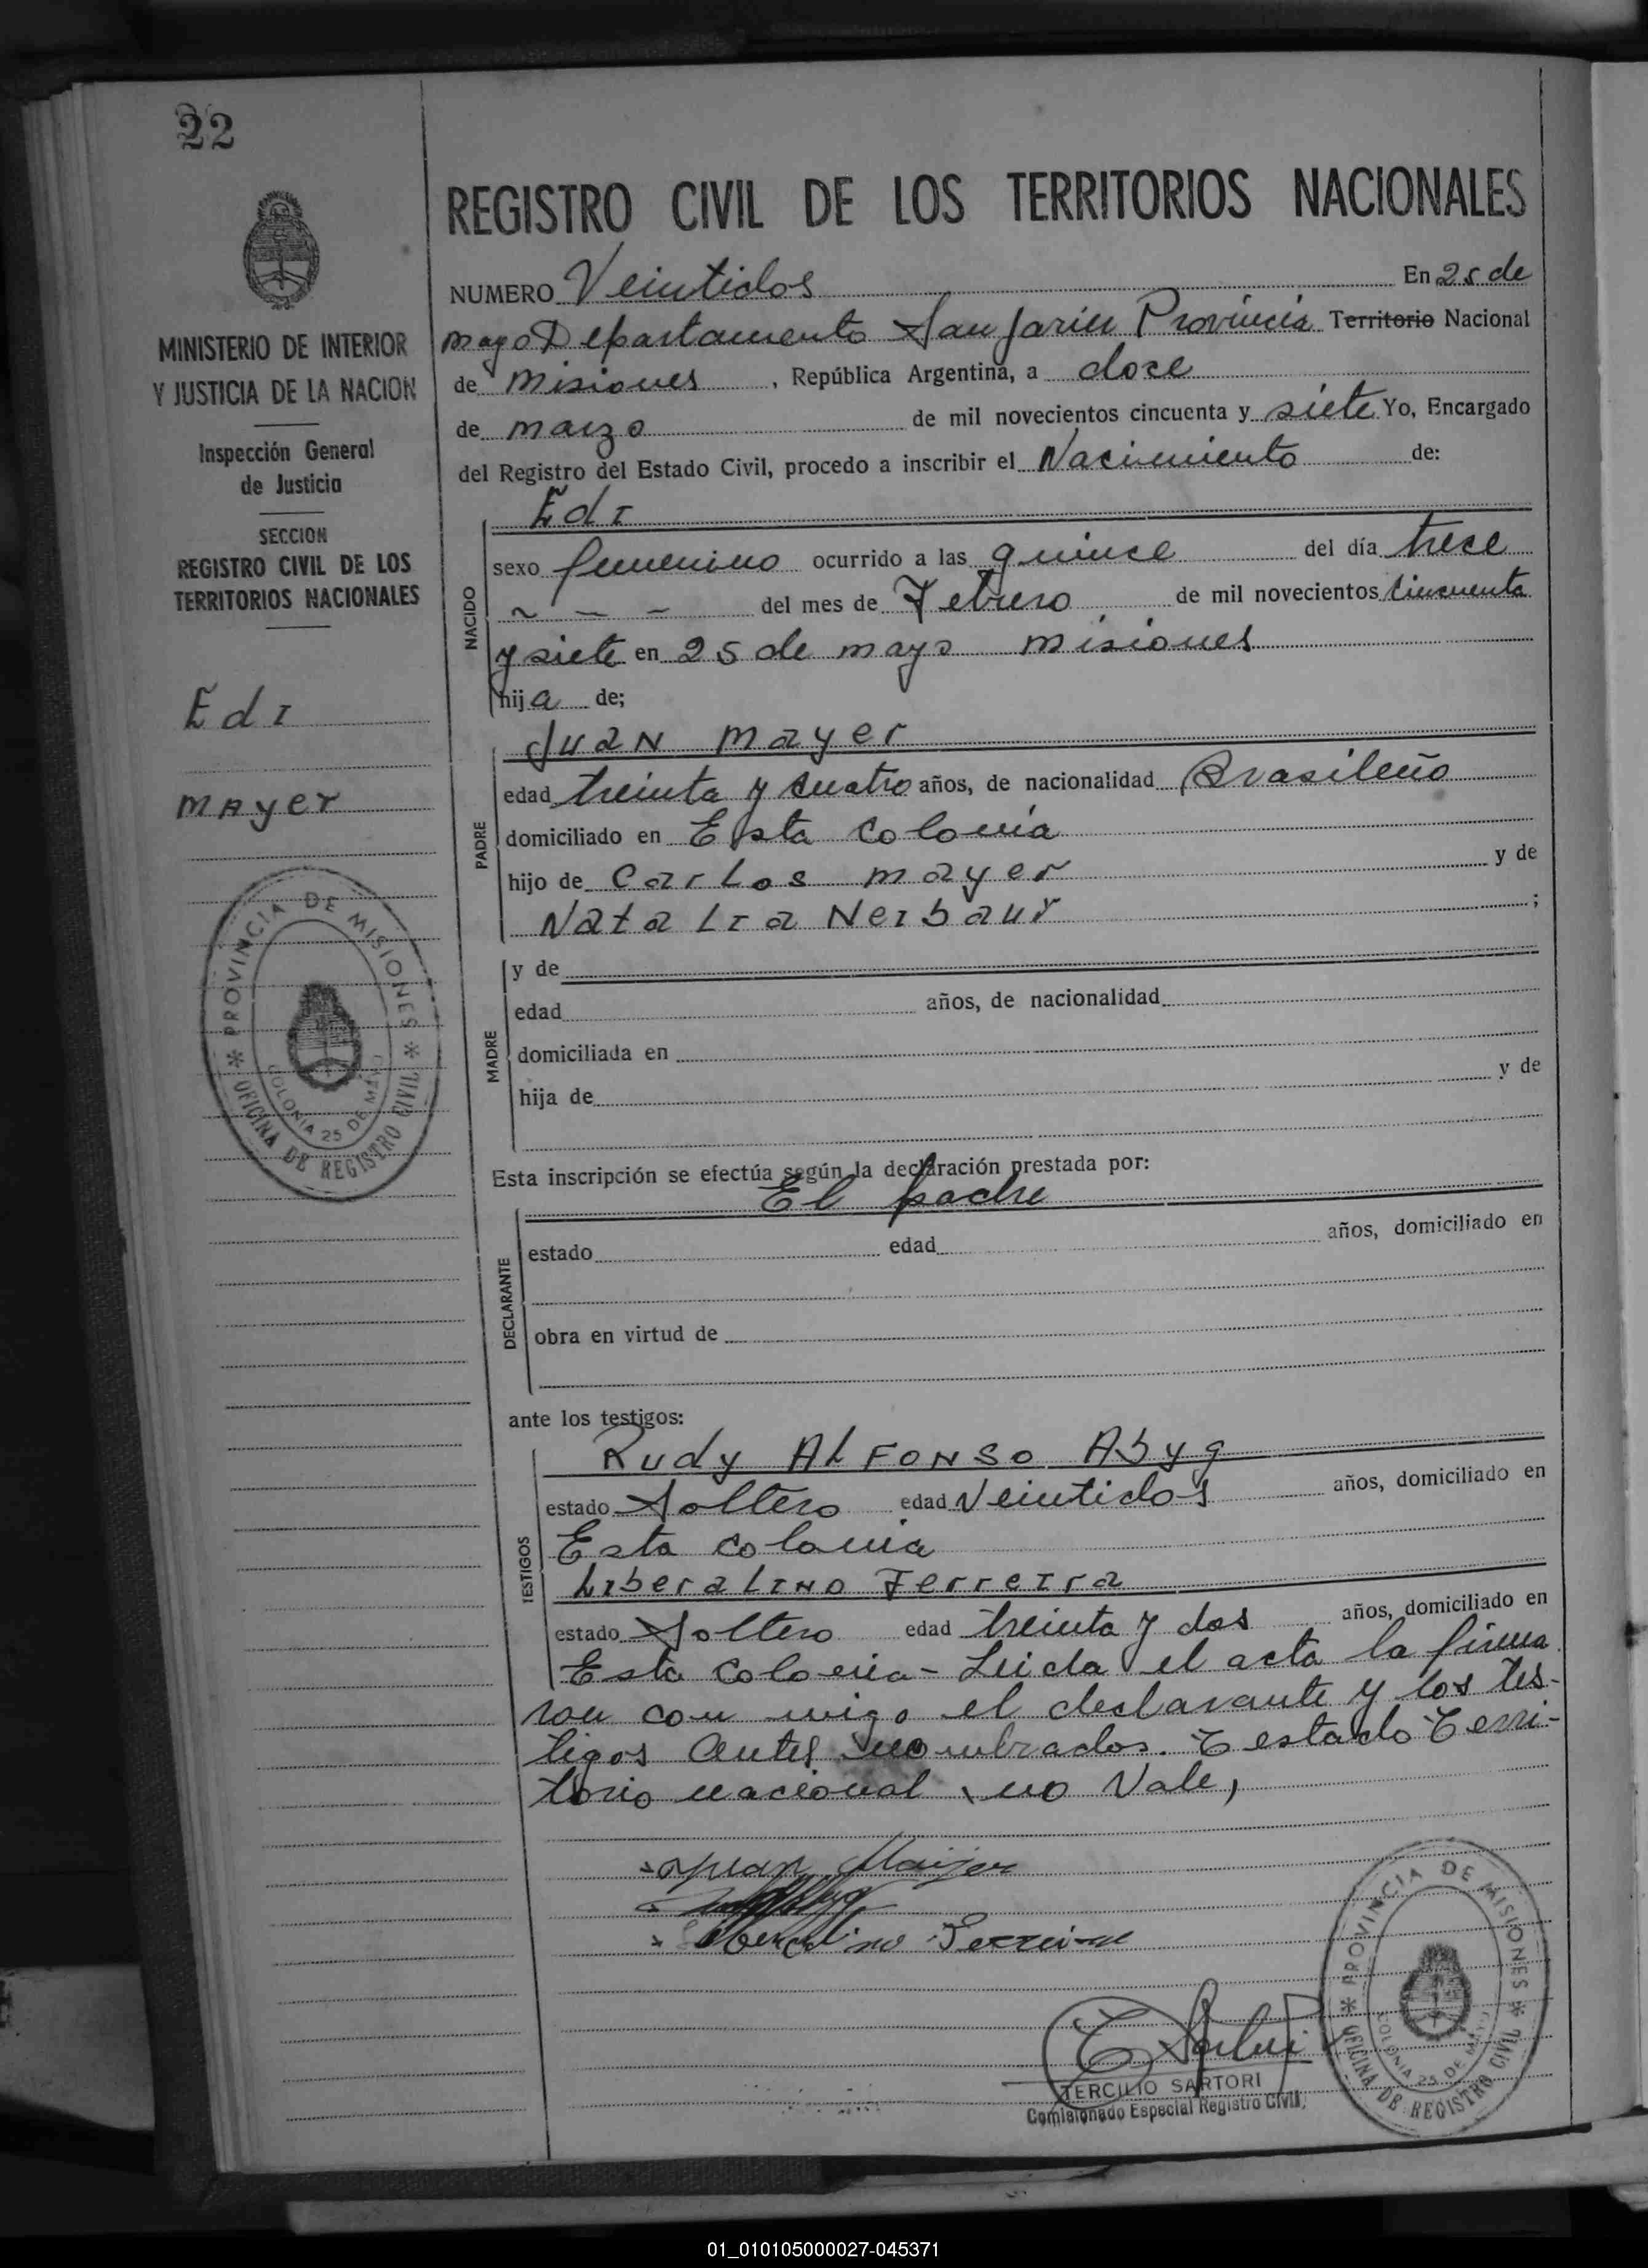 22
REGISTRO CIVIL DE LOS TERRITORIOS NACIONALES
NUMERO Veintidos En 25 de
mayo Departamento San Javier Provincia Territorio Nacional
de misiones, República Argentina, a doce
de marzo de mil novecientos cincuenta y siete Yo, Encargado
del Registro del Estado Civil, procedo a inscribir el Nacimiento de:
MINISTERIO DE INTERIOR
Y JUSTICIA DE LA NACION
Inspección General
de Justicia
SECCION
REGISTRO CIVIL DE LOS
TERRITORIOS NACIONALES
Edi
mayer
PROVINCIA DE MISIONES
COLONIA 25 DE MAYO
OFICINA DE REGISTRO CIVIL
NACIDO
Edi
sexo femenino ocurrido a las quince del día trece
~ — — del mes de Febrero de mil novecientos cincuenta
y siete en 25 de mayo misiones
hija de;
PADRE
Juan mayer
edad treinta y cuatro años, de nacionalidad Brasileño
domiciliado en Esta colonia
hijo de Carlos mayer y de
Natalia Neibaur;
MADRE
y de
edad años, de nacionalidad
domiciliada en
hija de y de
Esta inscripción se efectúa según la declaración prestada por:
El padre
DECLARANTE
estado edad años, domiciliado en
obra en virtud de
ante los testigos:
TESTIGOS
Rudy ALFONSO Abyg
estado Soltero edad Veintidos años, domiciliado en
Esta colonia
Liberalino Ferreira
estado Soltero edad treinta y dos años, domiciliado en
Esta colonia - Leida el acta la firma
ron con migo el declarante y los tes-
tigos antes nombrados. Testado Terri-
torio nacional no Vale,
Juan Maijer
Liberalino Ferreira
TERCILIO SARTORI
Comisionado Especial Registro Civil
PROVINCIA DE MISIONES
COLONIA 25 DE MAYO
OFICINA DE REGISTRO CIVIL
01_010105000027-045371